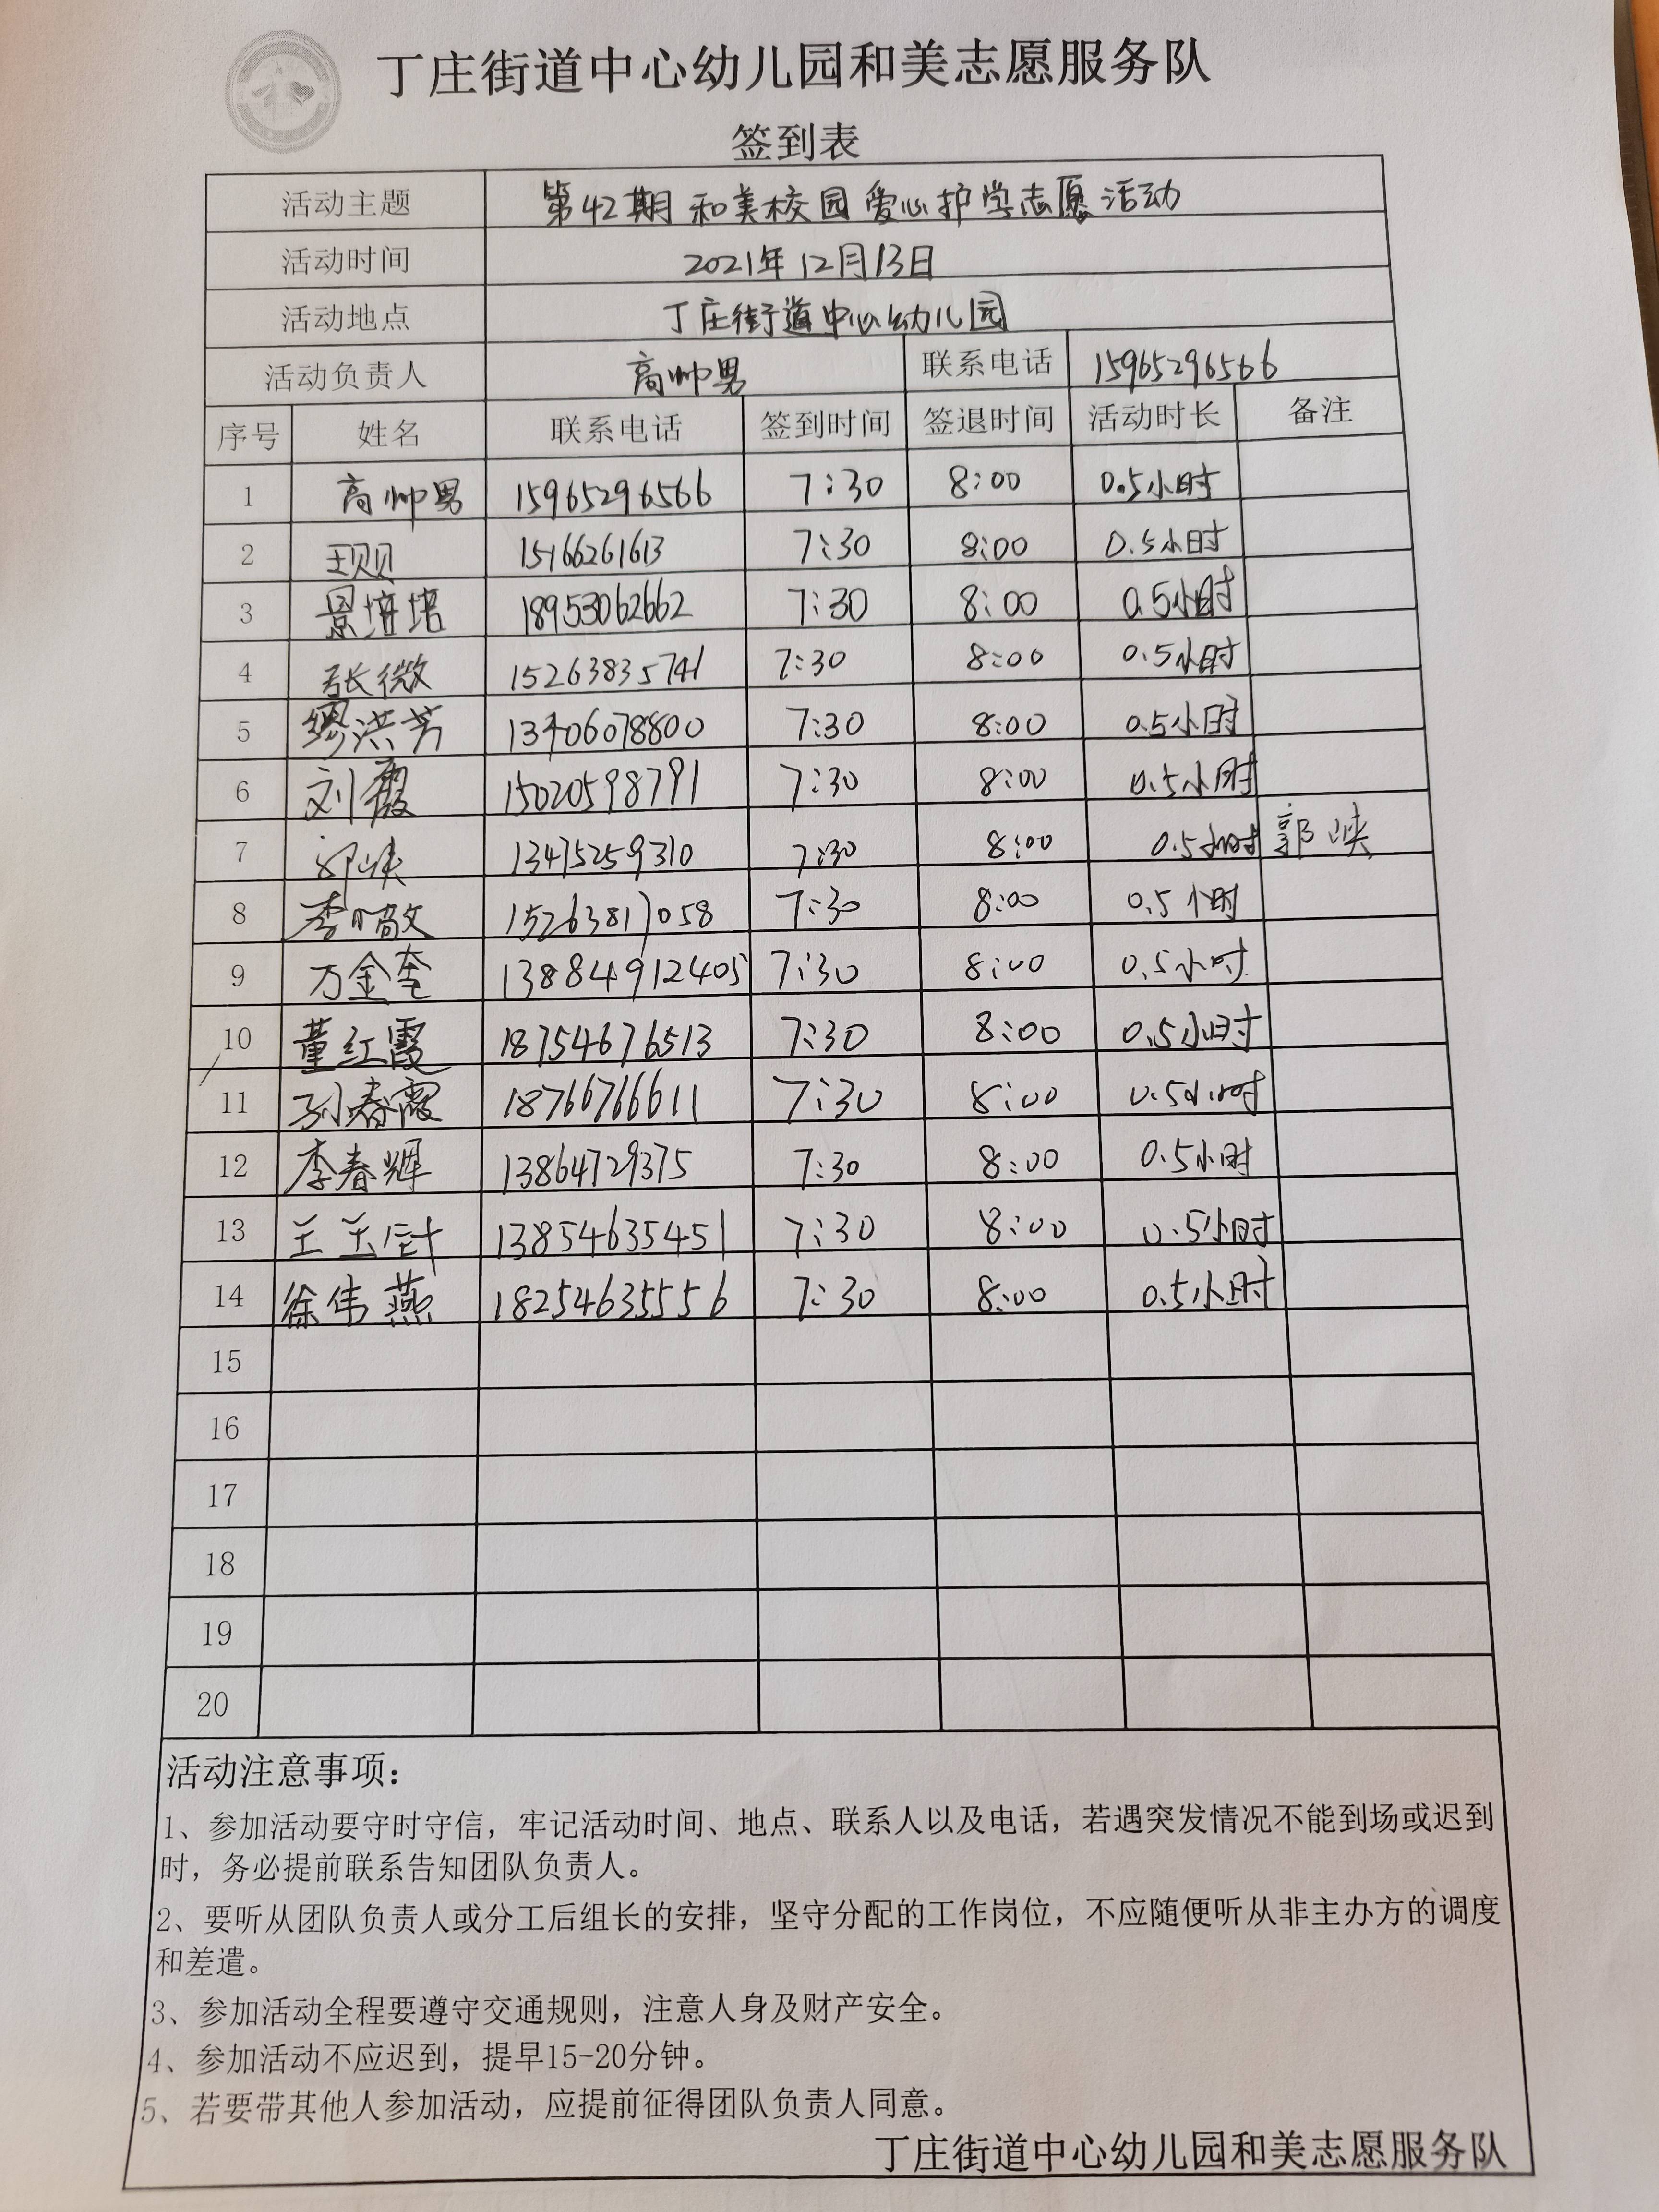 丁庄街道中心幼儿园和美志愿服务队
签到表
活动主题 第42期 和美校园 爱心护学志愿活动
活动时间 2021年12月13日
活动地点 丁庄街道中心幼儿园
活动负责人 高帅男 联系电话 15965296566
序号 姓名 联系电话 签到时间 签退时间 活动时长 备注
1 高帅男 15965296566 7:30 8:00 0.5小时
2 15166261613 7:30 8:00 0.5小时
3 景培培 18953062662 7:30 8:00 0.5小时
4 张微 15263835741 7:30 8:00 0.5小时
5 缪洪芳 13406078800 7:30 8:00 0.5小时
6 刘霞 15020598791 7:30 8:00 0.5小时
7 郭峡 13475259310 7:30 8:00 0.5小时 郭峡
8 李敬文 15263817058 7:30 8:00 0.5小时
9 万金奎 13884912405 7:30 8:00 0.5小时
10 董红霞 18754676513 7:30 8:00 0.5小时
11 孙春霞 18766766611 7:30 8:00 0.5小时
12 李春辉 13864729375 7:30 8:00 0.5小时
13 王玉 13854635451 7:30 8:00 0.5小时
14 徐伟燕 18254635556 7:30 8:00 0.5小时
15
16
17
18
19
20
活动注意事项：
1、参加活动要守时守信，牢记活动时间、地点、联系人以及电话，若遇突发情况不能到场或迟到
时，务必提前联系告知团队负责人。
2、要听从团队负责人或分工后组长的安排，坚守分配的工作岗位，不应随便听从非主办方的调度
和差遣。
3、参加活动全程要遵守交通规则，注意人身及财产安全。
4、参加活动不应迟到，提早15-20分钟。
5、若要带其他人参加活动，应提前征得团队负责人同意。
丁庄街道中心幼儿园和美志愿服务队